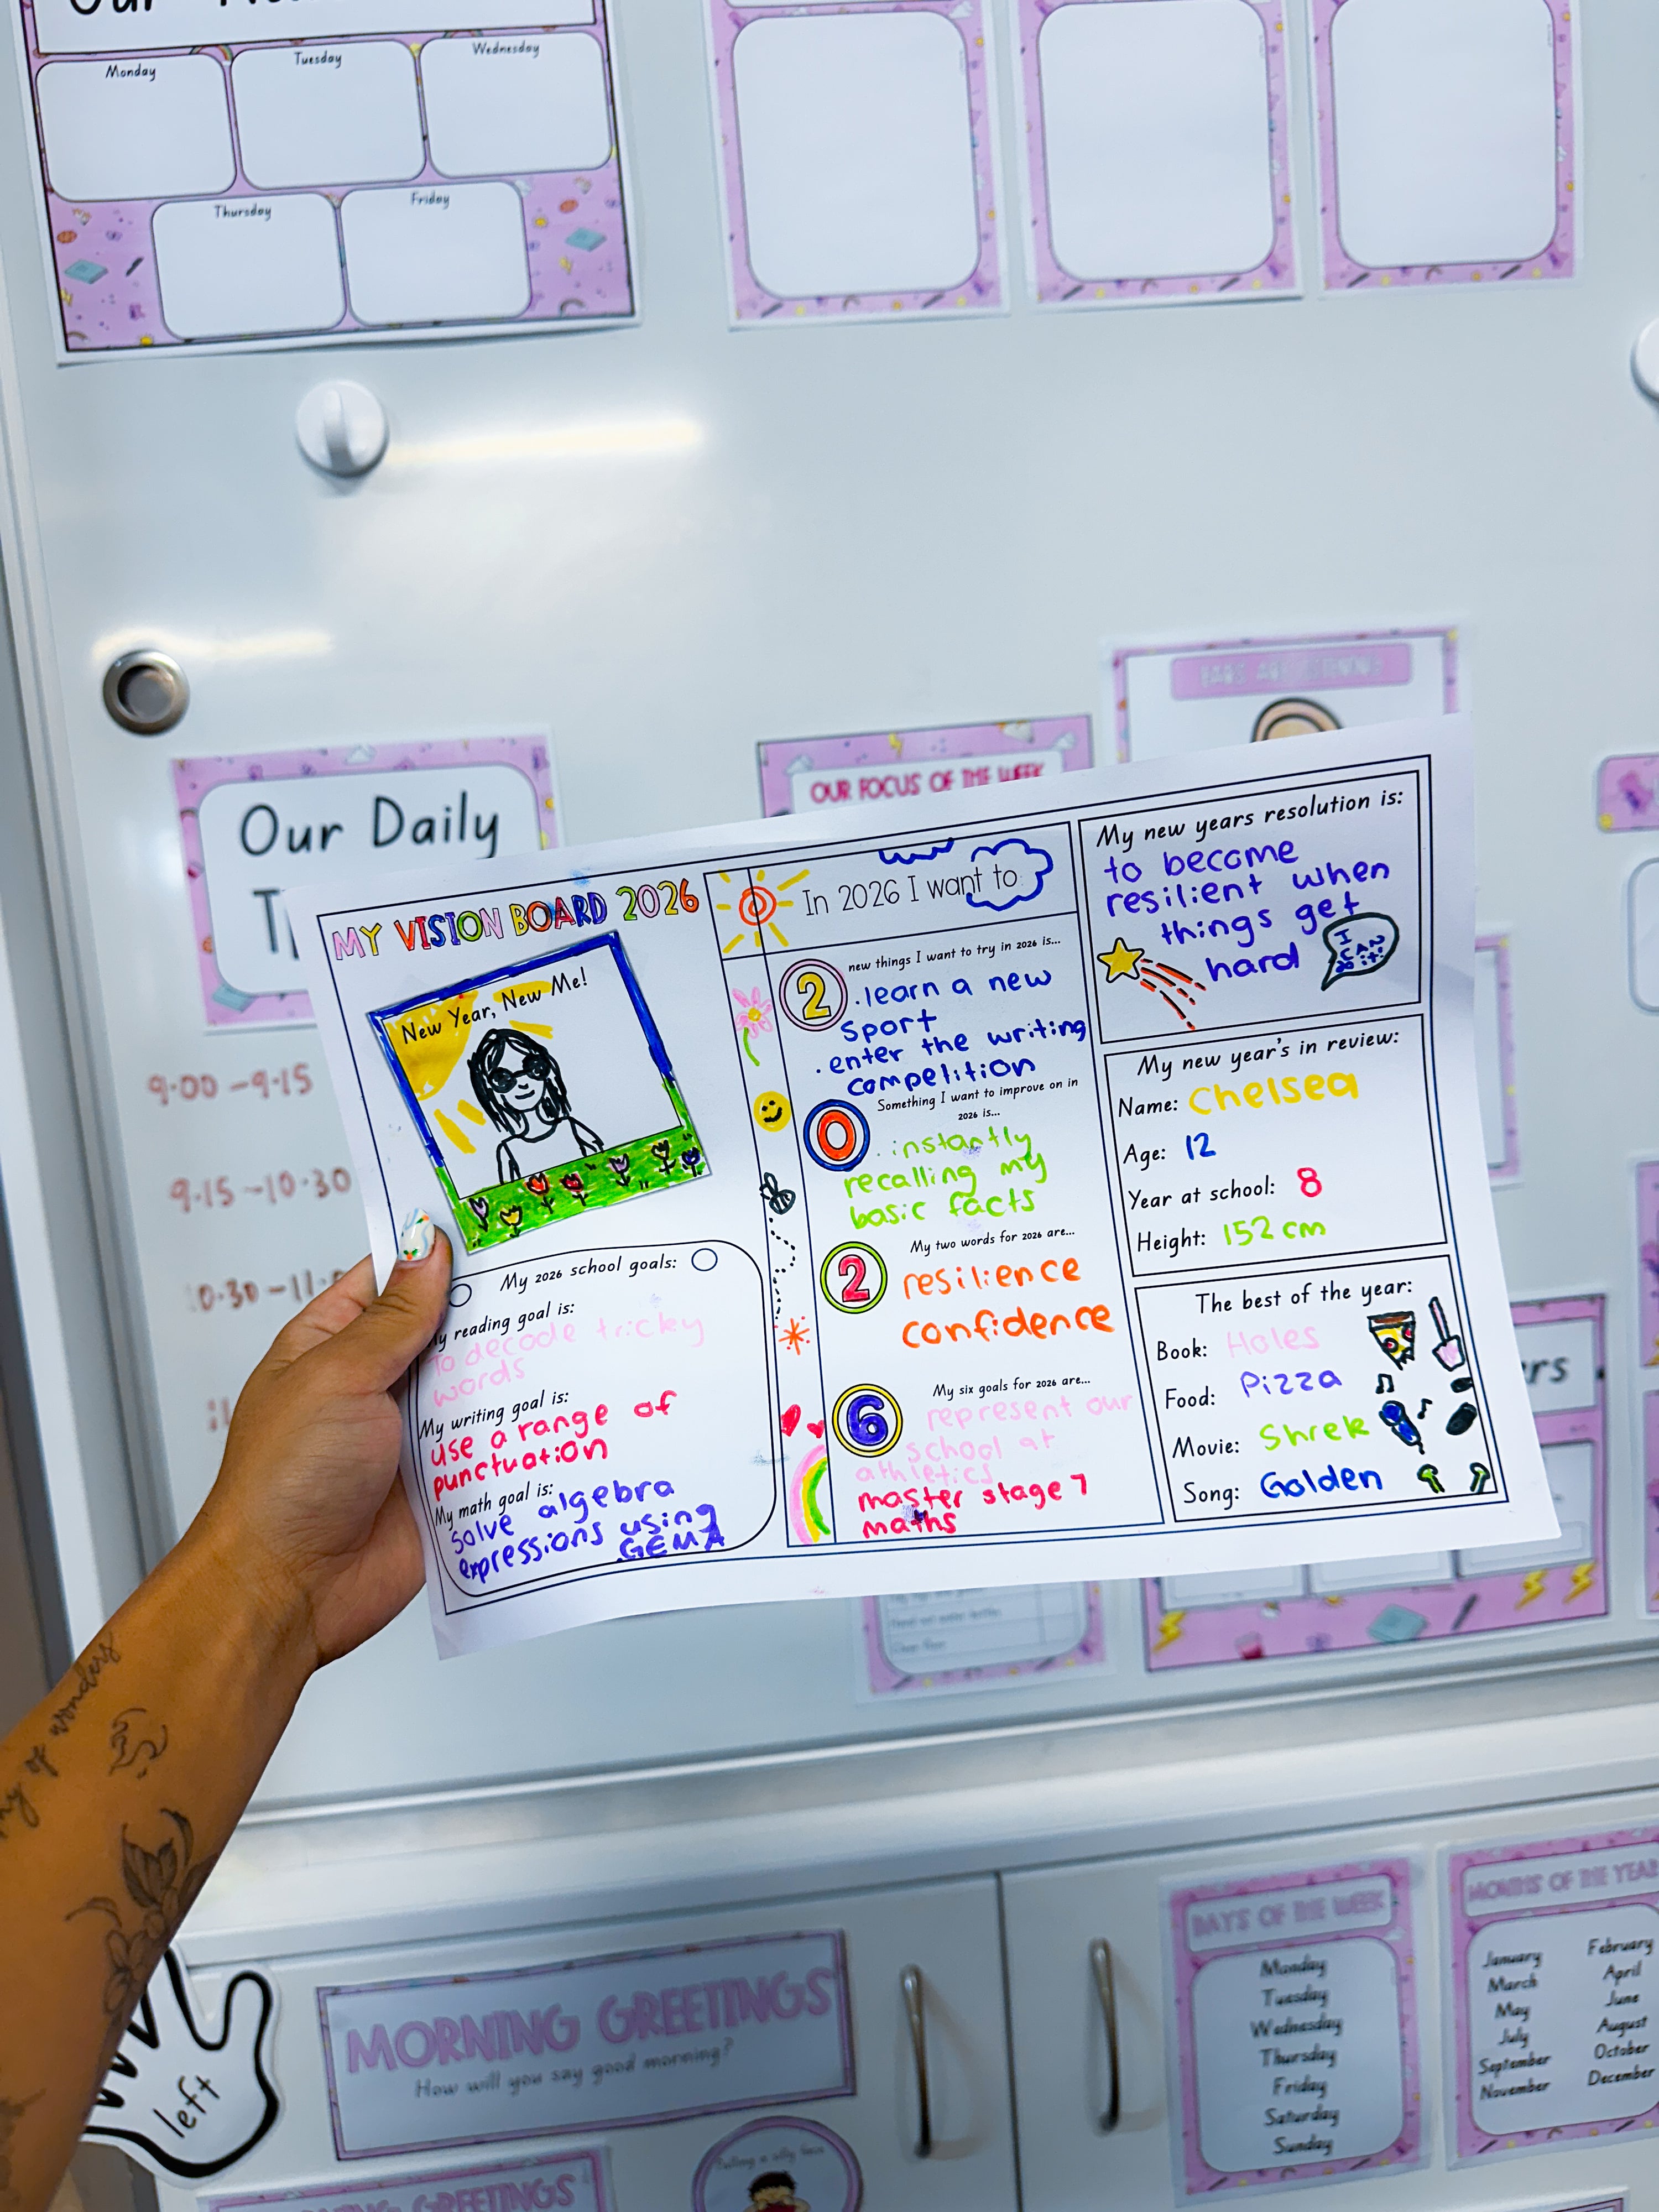 Our
Monday
Tuesday
Wednesday
Thursday
Friday
EARS ARE LISTENING
OUR FOCUS OF THE WEEK
Our Daily
9.00 - 9.15
9.15 - 10.30
10.30 - 11.0
MY VISION BOARD 2026
New Year, New Me!
My 2026 school goals:
My reading goal is:
To decode tricky
words
My writing goal is:
use a range of
punctuation
My math goal is:
solve algebra
expressions using
GEMA
In 2026 I want to
2
new things I want to try in 2026 is...
.learn a new
sport
.enter the writing
competition
0
Something I want to improve on in
2026 is...
.instantly
recalling my
basic facts
2
My two words for 2026 are...
resilience
confidence
6
My six goals for 2026 are...
represent our
school at
athletics
master stage 7
maths
My new years resolution is:
to become
resilient when
things get
hard
I
CAN
do it!
My new year's in review:
Name: Chelsea
Age: 12
Year at school: 8
Height: 152 cm
The best of the year:
Book: Holes
Food: Pizza
Movie: Shrek
Song: Golden
ers
my of wonders
left
MORNING GREETINGS
How will you say good morning?
MORNING GREETINGS
Pulling a silly face
DAYS OF THE WEEK
Monday
Tuesday
Wednesday
Thursday
Friday
Saturday
Sunday
MONTHS OF THE YEAR
January February
March April
May June
July August
September October
November December